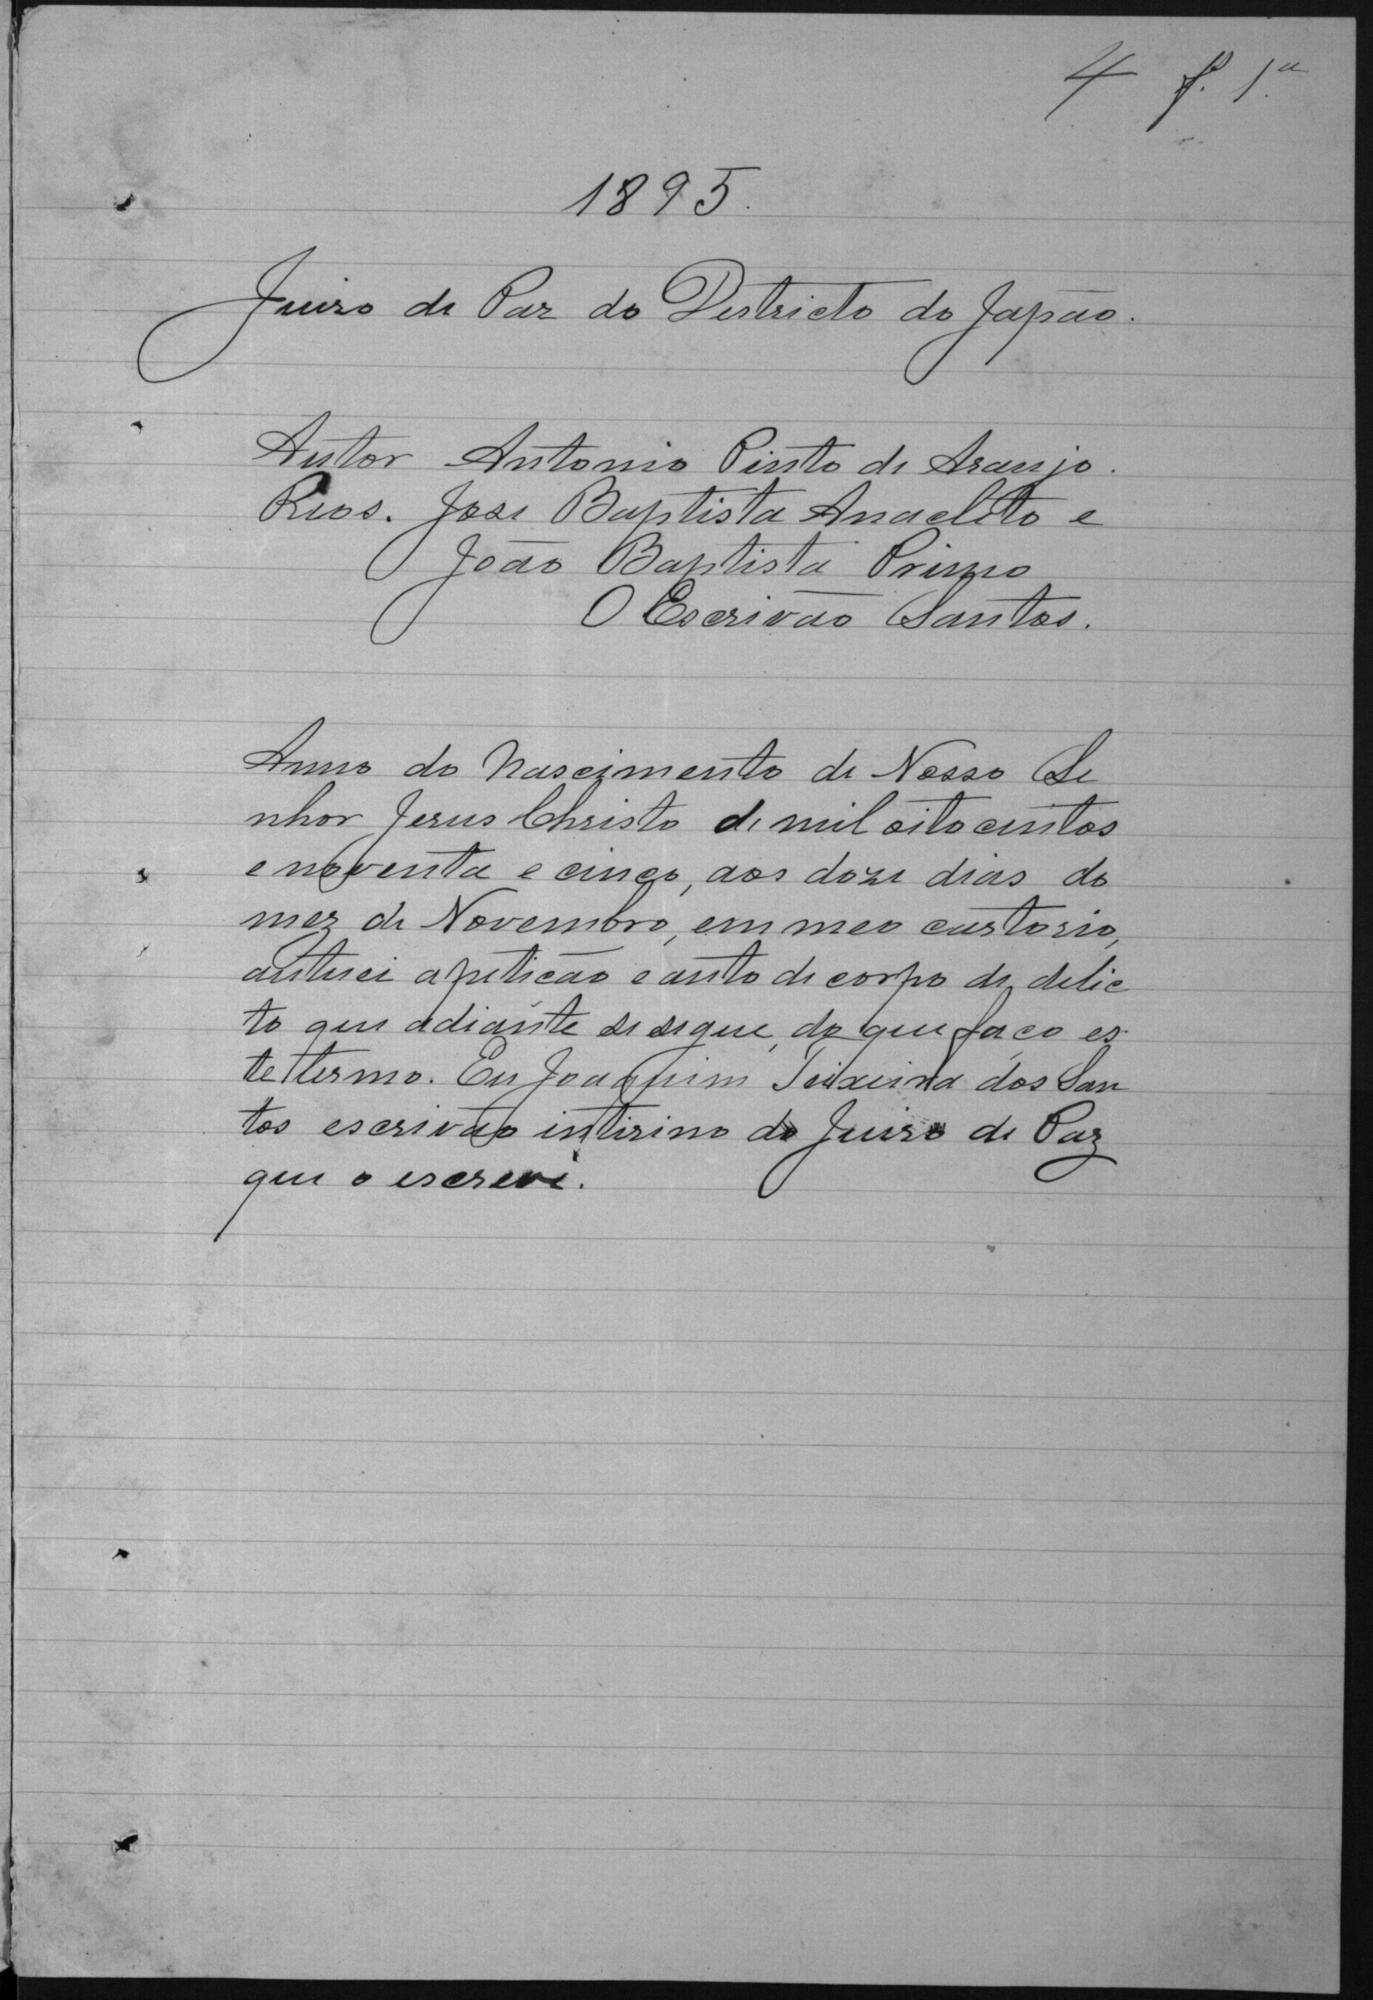 4 f. 1.a
1895.
Juizo de Paz do Destricto do Japão.
Autor Antonio Pinto de Araujo.
Reos. José Baptista Anacleto e
João Baptista Primo
O Escrivão Santos.
Anno do Nascimento de Nosso Se
nhor Jesus Christo de mil oitocentos
e noventa e cinco, aos doze dias do
mez de Novembro, em meo cartorio,
autuei a petição e auto de corpo de delic
to que adiante se segue, do que faço es
te termo. Eu Joaquim Teixeira dos San
tos escrivão intirino do Juizo de Paz
que o escrevi.